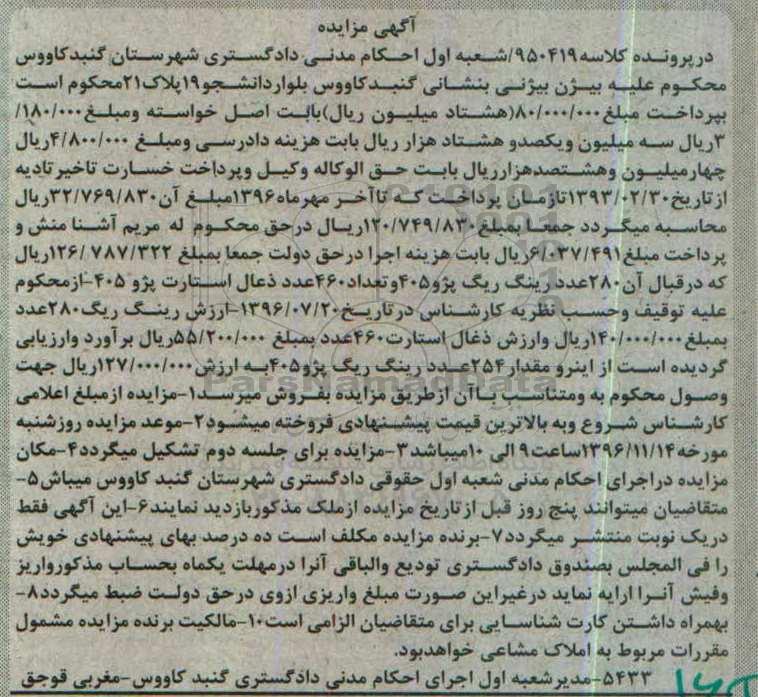 آگهی مزایده
درپرونده کلاسه ۹۵۰۴۱۹/شعبه اول احکام مدنی دادگستری شهرستان گنبدکاووس
محکوم علیه بیژن بیژنی بنشانی گنبدکاووس بلواردانشجو۱۹پلاک۲۱محکوم است
بپرداخت مبلغ۸۰/۰۰۰/۰۰۰(هشتاد میلیون ریال)بابت اصل خواسته ومبلغ۱۸۰/۰۰۰/
۳ریال سه میلیون ویکصدو هشتاد هزار ریال بابت هزینه دادرسی ومبلغ ۴/۸۰۰/۰۰۰ریال
چهارمیلیون وهشتصدهزارریال بابت حق الوکاله وکیل وپرداخت خسارت تاخیرتادیه
ازتاریخ۱۳۹۳/۰۲/۳۰تازمان پرداخت که تاآخر مهرماه۱۳۹۶مبلغ آن۳۲/۷۶۹/۸۳۰ریال
محاسبه میگردد جمعا بمبلغ۱۲۰/۷۴۹/۸۳۰ریال درحق محکوم له مریم آشنا منش و
پرداخت مبلغ۶/۰۳۷/۴۹۱ریال بابت هزینه اجرا درحق دولت جمعا بمبلغ ۱۲۶/۷۸۷/۳۲۲ریال
که درقبال آن۲۸۰عدد رینگ ریگ پژو۴۰۵وتعداد۴۶۰عدد ذعال استارت پژو ۴۰۵-ازمحکوم
علیه توقیف وحسب نظریه کارشناس درتاریخ۱۳۹۶/۰۷/۲۰-ارزش رینگ ریگ۲۸۰عدد
بمبلغ۱۴۰/۰۰۰/۰۰۰ریال وارزش ذغال استارت۴۶۰عدد بمبلغ ۵۵/۲۰۰/۰۰۰ریال برآورد وارزیابی
گردیده است از اینرو مقدار۲۵۴عدد رینگ ریگ پژو۴۰۵به ارزش۱۲۷/۰۰۰/۰۰۰ریال جهت
وصول محکوم به ومتناسب باآن ازطریق مزایده بفروش میرسد۱-مزایده ازمبلغ اعلامی
کارشناس شروع وبه بالاترین قیمت پیشنهادی فروخته میشود۲-موعد مزایده روزشنبه
مورخه۱۳۹۶/۱۱/۱۴ساعت۹الی ۱۰میباشد۳-مزایده برای جلسه دوم تشکیل میگردد۴-مکان
مزایده دراجرای احکام مدنی شعبه اول حقوقی دادگستری شهرستان گنبد کاووس میباش۵-
متقاضیان میتوانند پنج روز قبل ازتاریخ مزایده ازملک مذکوربازدید نمایند۶-این آگهی فقط
دریک نوبت منتشر میگردد۷-برنده مزایده مکلف است ده درصد بهای پیشنهادی خویش
را فی المجلس بصندوق دادگستری تودیع والباقی آنرا درمهلت یکماه بحساب مذکورواریز
وفیش آنرا ارایه نماید درغیراین صورت مبلغ واریزی ازوی درحق دولت ضبط میگردد۸-
بهمراه داشتن کارت شناسایی برای متقاضیان الزامی است۱۰-مالکیت برنده مزایده مشمول
مقررات مربوط به املاک مشاعی خواهدبود.
۵۴۳۳-مدیرشعبه اول اجرای احکام مدنی دادگستری گنبد کاووس-مغربی قوجق
ParsNamadData